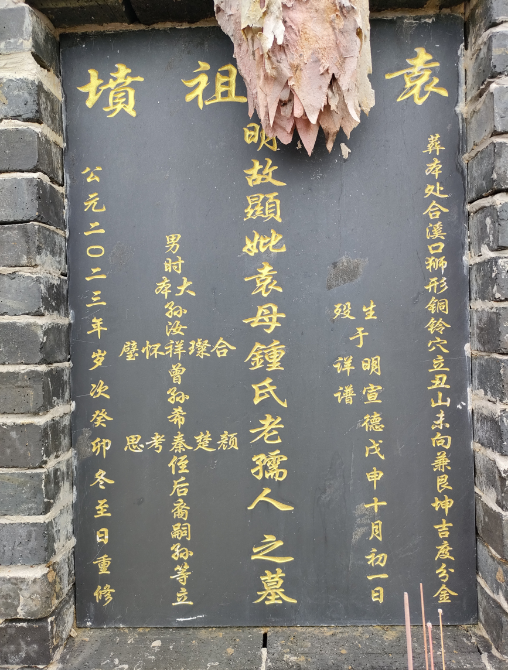 袁祖墳
葬本处合溪口狮形铜铃穴立丑山未向兼艮坤吉度分金
生于明宣德戊申十月初一日
殁详谱
明故顯妣袁母鍾氏老孺人之墓
男时本大孙汝祥曾孙希秦任后裔嗣孙等立
合璨怀璧
颜楚考思
公元二〇二三年岁次癸卯冬至日重修